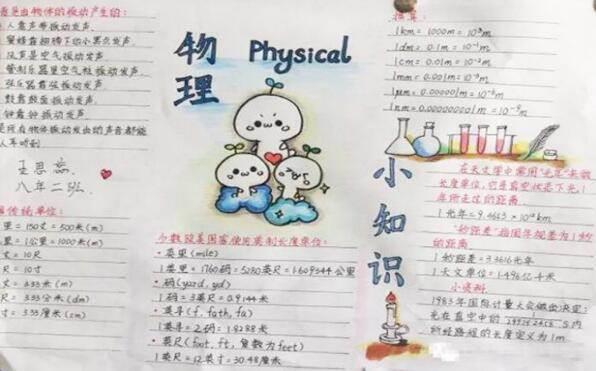 是由物体的振动产生的:
人靠声带振动发声.
蜜蜂靠翅膀下的小黑点发声.
风声是空气振动发声.
管制乐器里空气柱振动发声.
弦乐器靠弦振动发声.
鼓靠鼓面振动发声.
钟靠钟振动发声.
八年二班.
传统单位:
里=150丈=500米(m)
里=1公里=1000米(m)
丈=10尺
尺=10寸
丈=3.33米(m)
尺=3.33分米(dm)
寸=3.33厘米(cm)
物理
Physical
小知识
少数欧美国家使用英制长度单位:
·英里(mile)
1英里=1760码=5280英尺=1.609344公里
·码(yard, yd)
1码=3英尺=0.9144米
·英寻(f, fath, fm)
1英寻=2码=1.8288米
·英尺(foot, ft, 复数为feet)
1英尺=12英寸=30.48厘米
换算:
1km=1000m=10³m
1dm=0.1m=10⁻¹m
1cm=0.01m=10⁻²m
1mm=0.001m=10⁻³m
1μm=0.000001m=10⁻⁶m
1nm=0.000000001m=10⁻⁹m
在天文学中常用"光年"来做
长度单位,它是真空状态下光1
年所走过的距离.
1光年=9.4653×10¹⁵km
的距离.
1秒差距=3.3616光年
1天文单位=1.496亿千米
小资料
1983年国际计量大会做出决定:
光在真空中的
所经路程的长度定义为1m